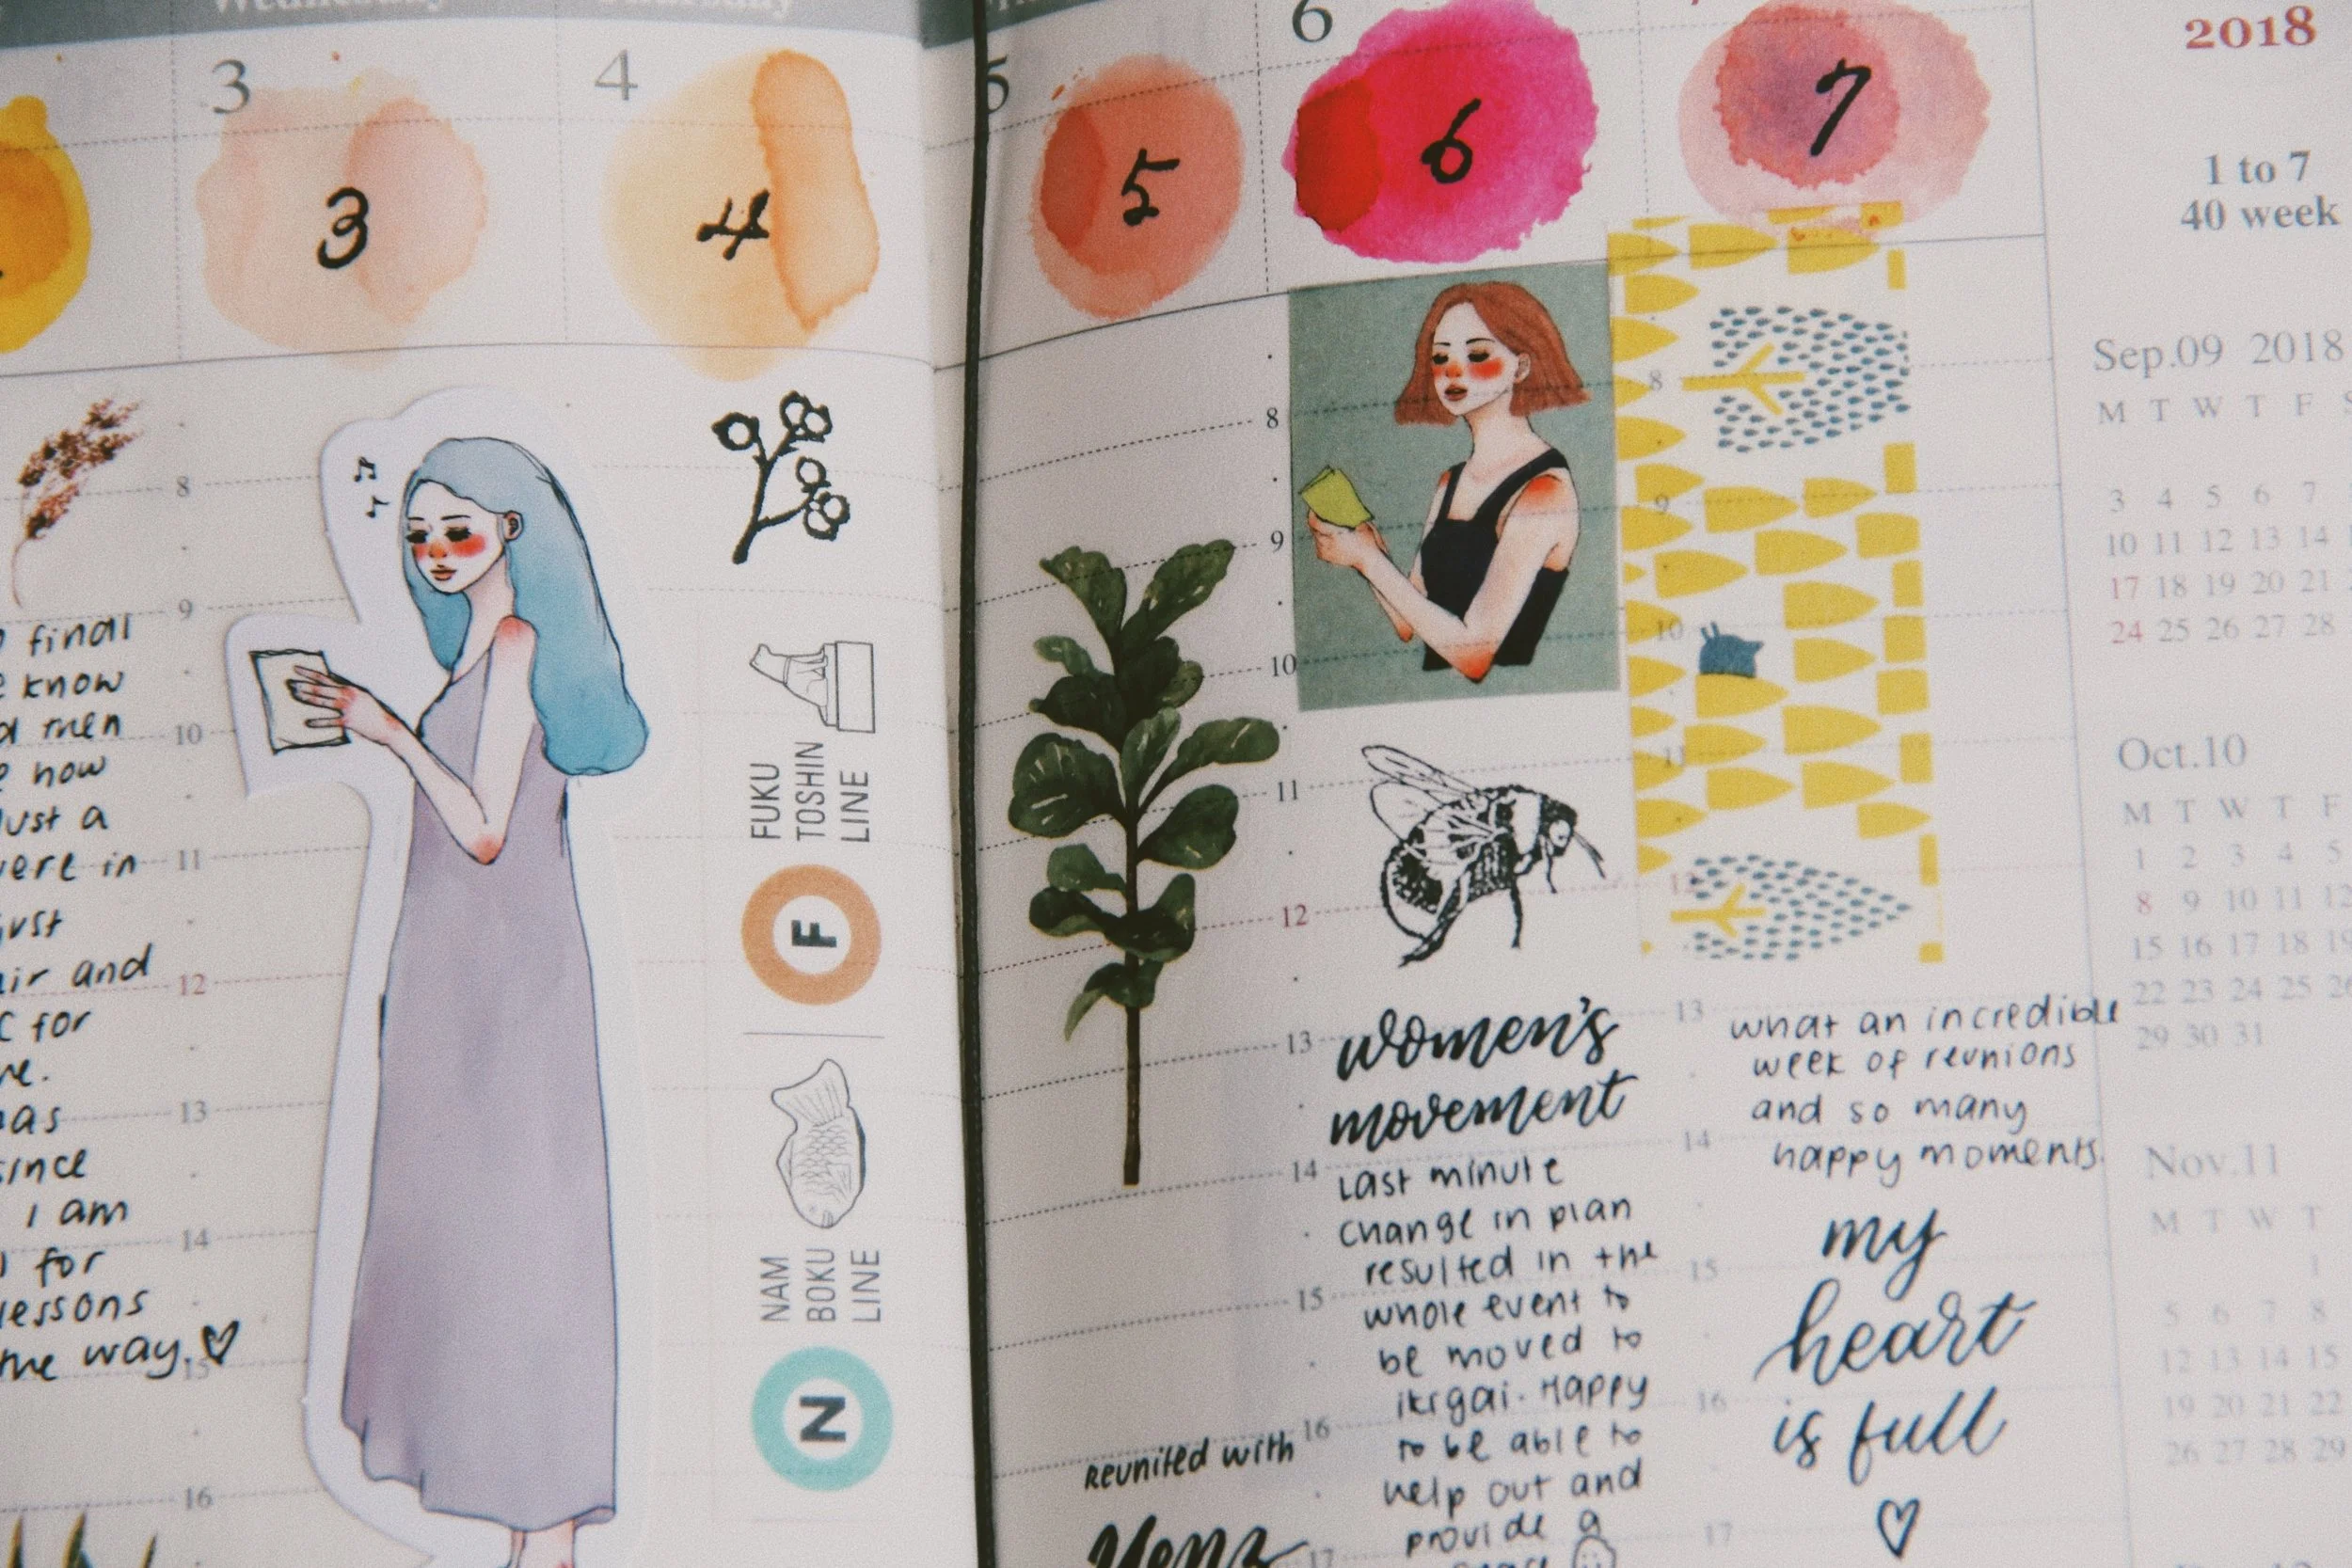 Wednesday
Thursday
3
4
5
6
3
4
5
6
7
8
9
10
11
12
13
14
15
16
final
know
men
now
just a
were in
just
and
for
as
since
I am
for
lessons
the way. ♡
FUKU
TOSHIN
LINE
F
NAM
BOKU
LINE
N
8
9
10
11
12
13
14
15
16
17
Reunited with
women's
movement
Last minute
change in plan
resulted in the
whole event to
be moved to
ikigai. Happy
to be able to
help out and
provide a
space
8
9
10
11
12
13
14
15
16
17
what an incredible
week of reunions
and so many
happy moments.
my
heart
is full
♡
2018
1 to 7
40 week
Sep.09 2018
M T W T F S
3 4 5 6 7
10 11 12 13 14
17 18 19 20 21
24 25 26 27 28
Oct.10
M T W T F
1 2 3 4 5
8 9 10 11 12
15 16 17 18 19
22 23 24 25 26
29 30 31
Nov.11
M T W T
1
5 6 7 8
12 13 14 15
19 20 21 22
26 27 28 29